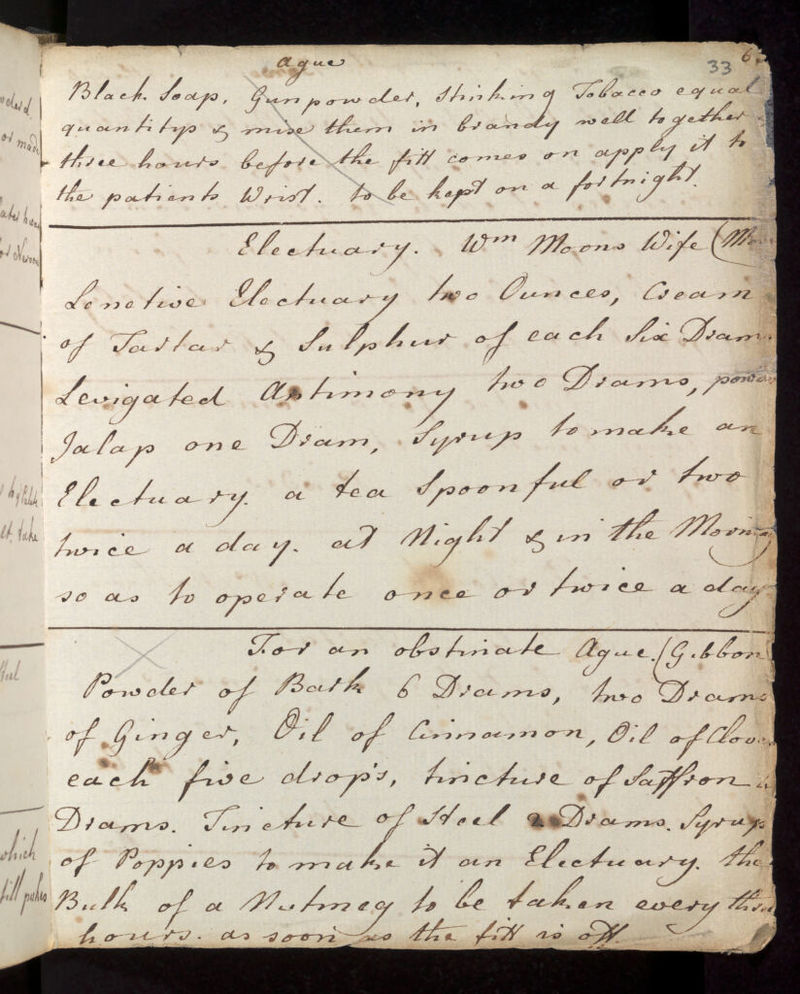 Ague
33
6
Black Soap, Gunpowder, Stinking Tobacco equal
quantitys & mixe them in brandy well together
three hours before the fitt comes on apply it to
the patients Wrist. to be kept on a fortnight.
Electuary. Wm Moons Wife
Lenetive Electuary two Ounces, Cream
of Tartar & Sulphur of each Six Dram
Levigated Antimony two Drams,
Jalap one Dram, Syrup to make an
Electuary. a tea Spoonful or two
twice a day. at Night & in the Morning
so as to operate once or twice a day
For an obstinate Ague. (Gibbon
Powder of Bark 6 Drams, two Drams
of Ginger, Oil of Cinnamon, Oil of Clov
each five drops, tincture of Saffron
Drams. Tincture of Steel 2 Drams. Syrup
of Poppies to make it an Electuary. the
Bulk of a Nutmeg to be taken every three
hours. as soon as the fitt is off.
which
take